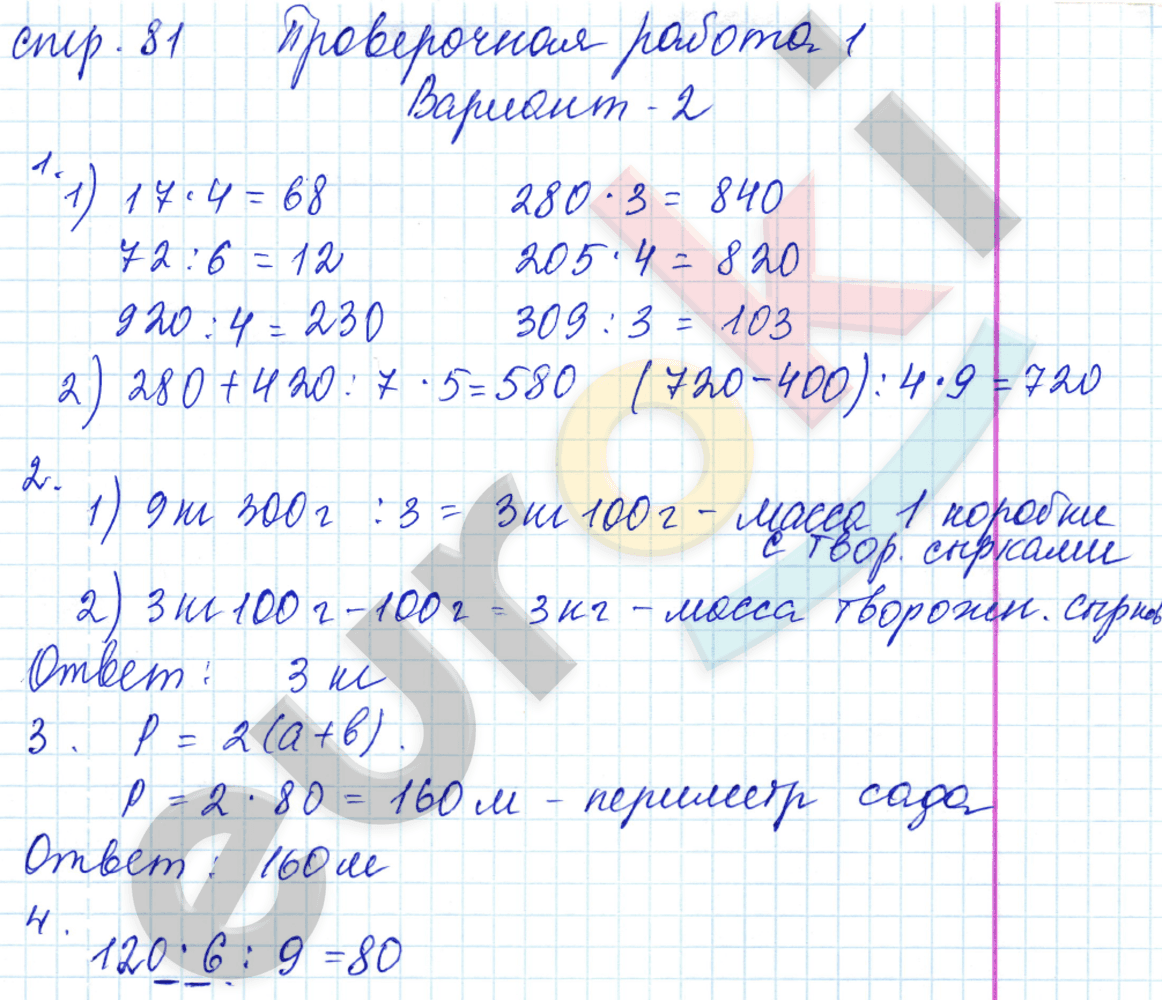 стр. 81 Проверочная работа 1
Вариант - 2
1.
1) 17 · 4 = 68 280 · 3 = 840
72 : 6 = 12 205 · 4 = 820
920 : 4 = 230 309 : 3 = 103
2) 280 + 420 : 7 · 5 = 580 (720 - 400) : 4 · 9 = 720
2.
1) 9 кг 300 г : 3 = 3 кг 100 г - масса 1 коробки
с твор. сырками
2) 3 кг 100 г - 100 г = 3 кг - масса творожн. сырков
Ответ: 3 кг
3. P = 2(a + b).
P = 2 · 80 = 160 м - периметр сада
Ответ: 160 м
4.
120 · 6 : 9 = 80
euroki